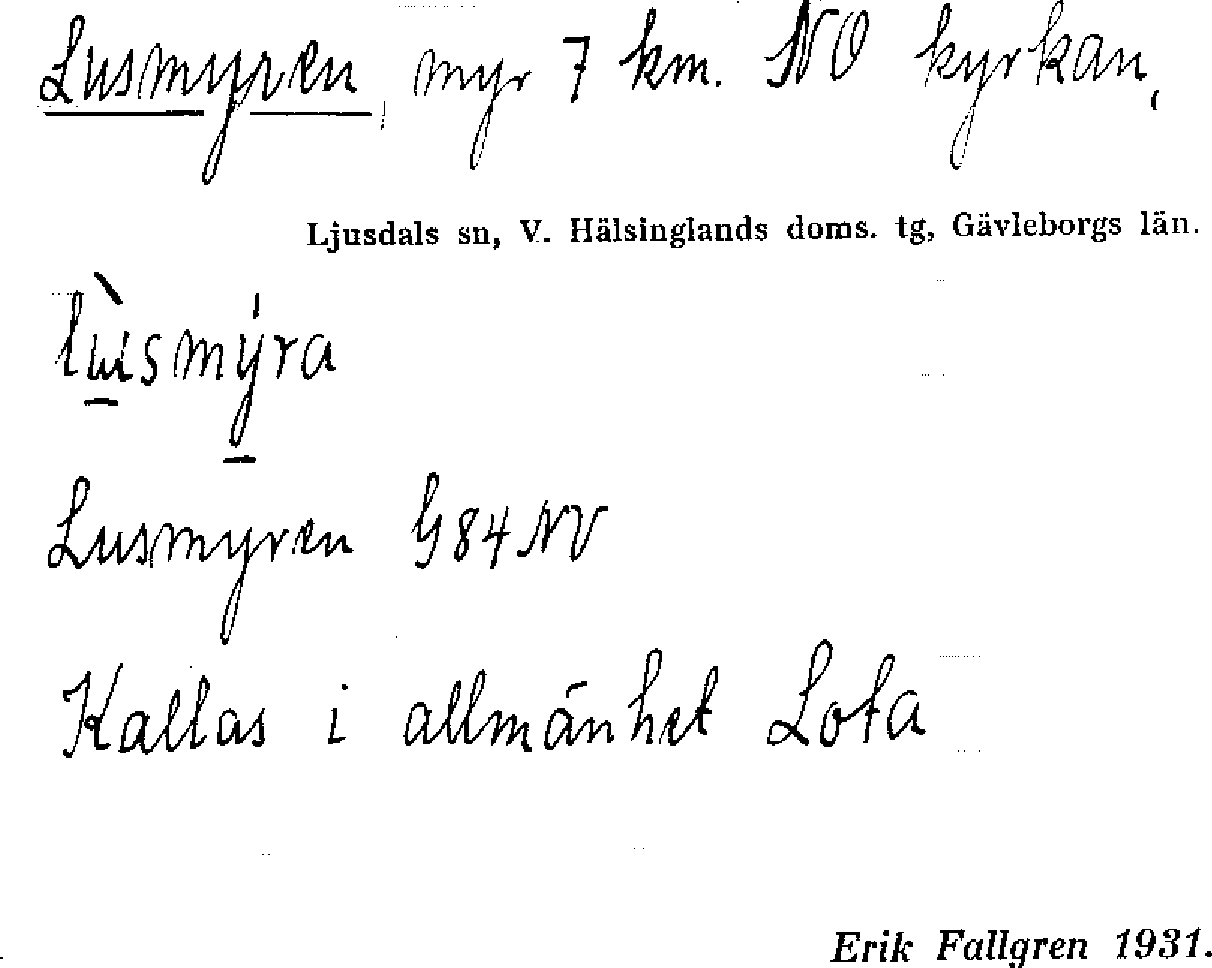 Lusmyren, myr 7 km. NO kyrkan,
Ljusdals sn, V. Hälsinglands doms. tg, Gävleborgs län.
lu̠̇̀smy̠̍ra
Lusmyren G84NV
Kallas i allmänhet Lota
Erik Fallgren 1931.